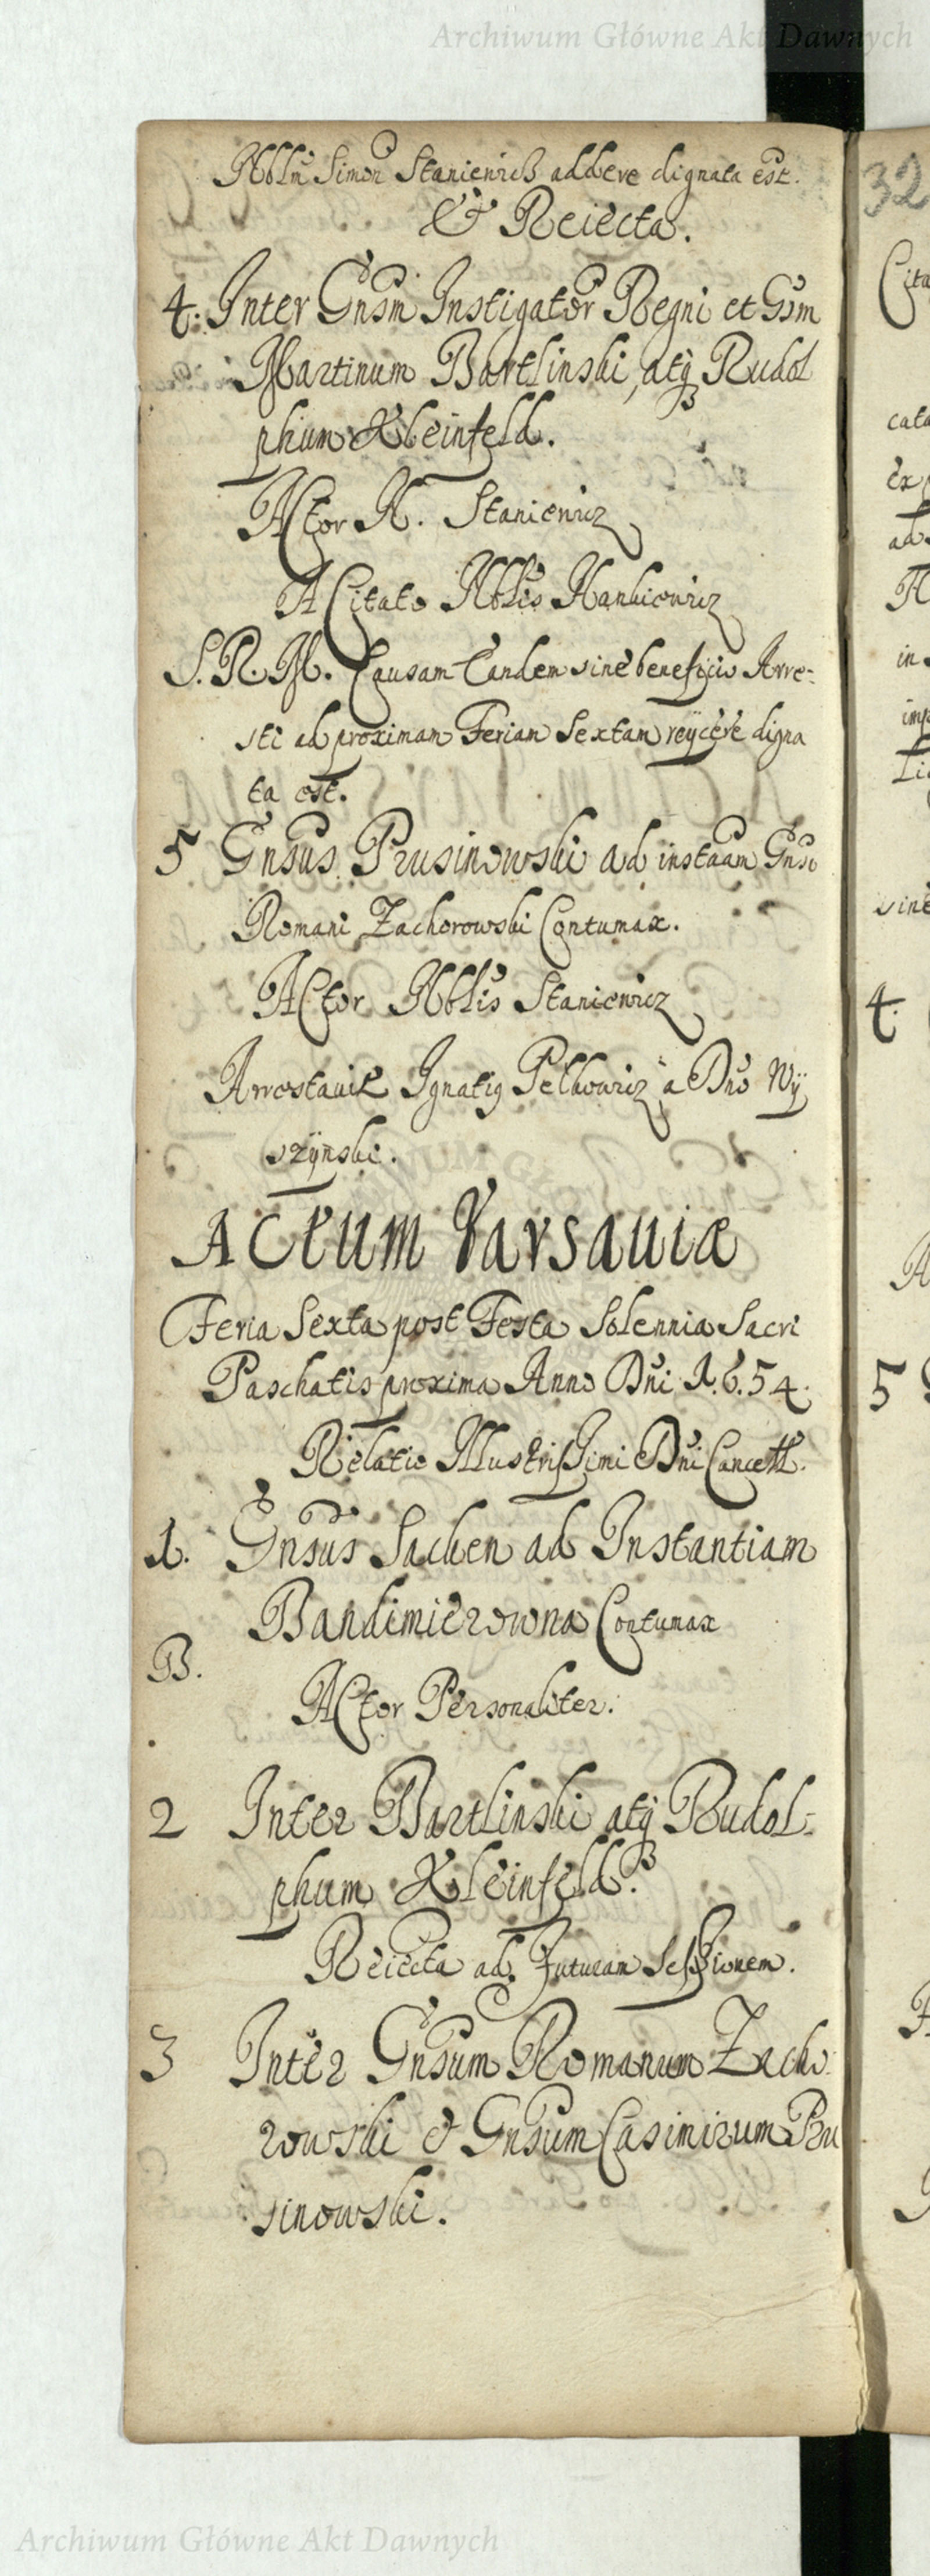 Archiwum Główne Akt Dawnych
Nobln Simon Staniewicz addere dignata est.
& Reiecta.
32
4. Inter Gnsm Instigator Regni et Gsm
Martinum Bartlinski, atq Rudol
phum Kleinfeld.
Actor N. Staniewicz
A Citato Nblis Hankiewicz
S. R. M. Causam tandem sine beneficio Arre-
sti ad proximam Feriam Sextam reÿcere digna
ta est.
5 Gnsus Prusinowski ad instaam Gnsi
Romani Zachorowski Contumax.
Actor Nblis Staniewicz
Arrestavit Ignatiq Pelkowicz a Dno Wÿ
szÿnski.
Actum Varsaviæ
Feria Sexta post Festa Solennia Sacri
Paschatis proxima Anno Dni 1.6.54.
Relatio Illustrissimi Dni Cancell.
1. Gnsus Sachen ad Instantiam
Bandimierowna Contumax
B.
Actor Personaliter.
2 Inter Bartlinski atq Rudol-
phum Kleinfeld.
Reiecta ad Futuram Sessionem.
3 Inter Gnsum Romanum Zacho-
rowski & Gnsum Casimirum Pru
sinowski.
4.
5
Archiwum Główne Akt Dawnych